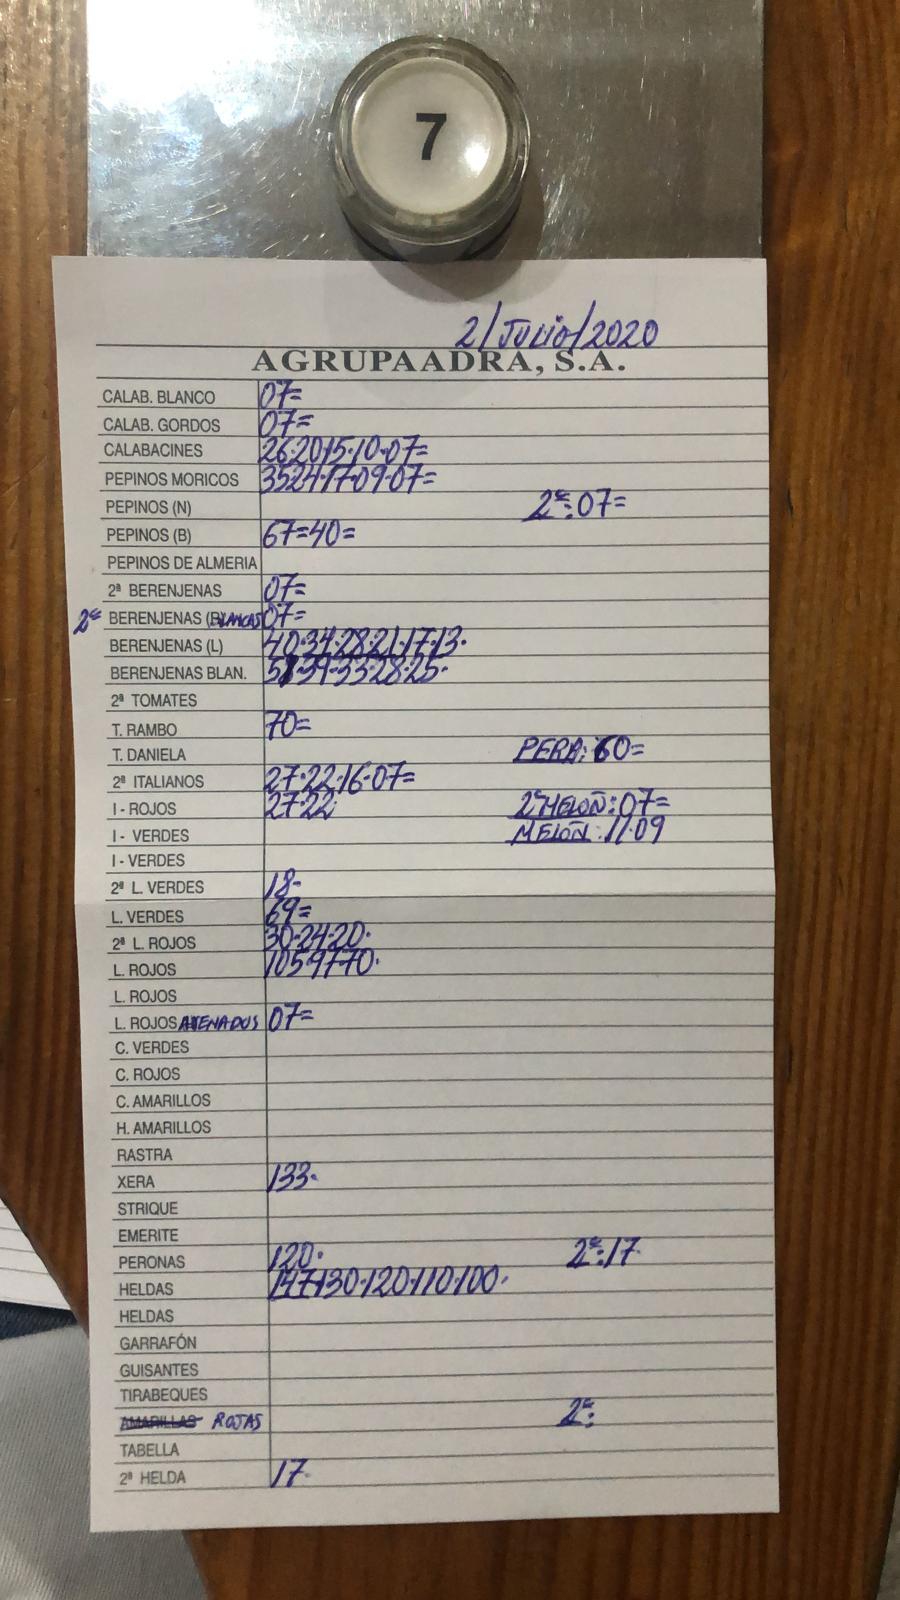 7
2/JULIO/2020
AGRUPAADRA, S.A.
CALAB. BLANCO 07=
CALAB. GORDOS 07=
CALABACINES 26·20·15·10·07=
PEPINOS MORICOS 35·24·17·09·07=
PEPINOS (N) 2ª: 07=
PEPINOS (B) 67=40=
PEPINOS DE ALMERIA
2ª BERENJENAS 07=
2ª BERENJENAS (BLANCAS 07=
BERENJENAS (L) 40·34·28·21·17·13·
BERENJENAS BLAN. 51·39·33·28·25·
2ª TOMATES
T. RAMBO 70=
T. DANIELA PERA: 60=
2ª ITALIANOS 27·22·16·07=
I - ROJOS 27·22 2ª MELOÑ: 07=
I - VERDES MELOÑ: 11·09
I - VERDES
2ª L. VERDES 18-
L. VERDES 69=
2ª L. ROJOS 30·24·20·
L. ROJOS 105·97·70·
L. ROJOS
L. ROJOS 07=
C. VERDES
C. ROJOS
C. AMARILLOS
H. AMARILLOS
RASTRA
XERA 133·
STRIQUE
EMERITE
PERONAS 120· 2ª: 17·
HELDAS 147·130·120·110·100·
HELDAS
GARRAFÓN
GUISANTES
TIRABEQUES
AMARILLAS ROJAS 2ª:
TABELLA
2ª HELDA 17·